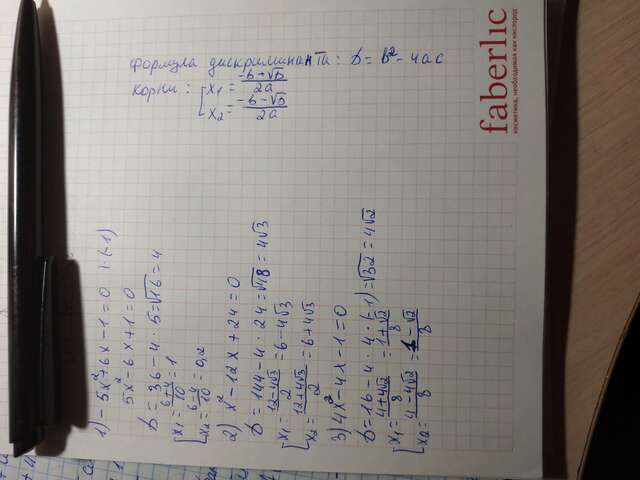 1) - 5x² + 6x - 1 = 0   | · (-1)
5x² - 6x + 1 = 0
D = 36 - 4 · 5 = √16 = 4
[ x₁ = (6+4)/10 = 1
x₂ = (6-4)/10 = 0,2
2) x² - 12x + 24 = 0
D = 144 - 4 · 24 = √48 = 4√3
[ x₁ = (12-4√3)/2 = 6 - 4√3
x₂ = (12+4√3)/2 = 6 + 4√3
3) 4x² - 4x - 1 = 0
D = 16 - 4 · 4 · (-1) = √32 = 4√2
[ x₁ = (4+4√2)/8 = (1+√2)/8
x₂ = (4-4√2)/8 = (1-√2)/8
Формула дискриминанта: D = b² - 4ac
Корни: [ x₁ = (-b+√D)/2a
x₂ = (-b-√D)/2a
faberlic
косметика, необходимая как кислород